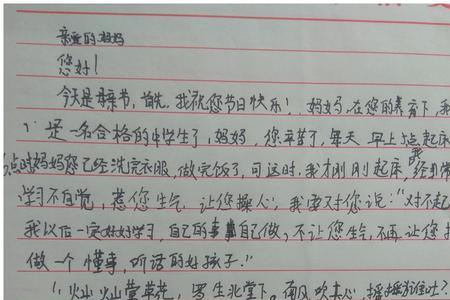 亲爱的妈妈
您好!
今天是母亲节,首先,我祝您节日快乐!,妈妈,在您的养育下,我
是一名合格的中学生了,妈妈,您辛苦了,每天早上5点起床
点时妈妈您已经洗完衣服,做完饭了,可这时,我才刚刚起床,我经常
学习不自觉,惹您生气,让您操心,我要对您说:“对不起
我以后一定好好学习,自己的事自己做,不让您生气,不再让您操
做一个懂事,听话的好孩子.”
“灿灿萱草花,罗生北堂下,南风吹其心,摇摇为谁吐?